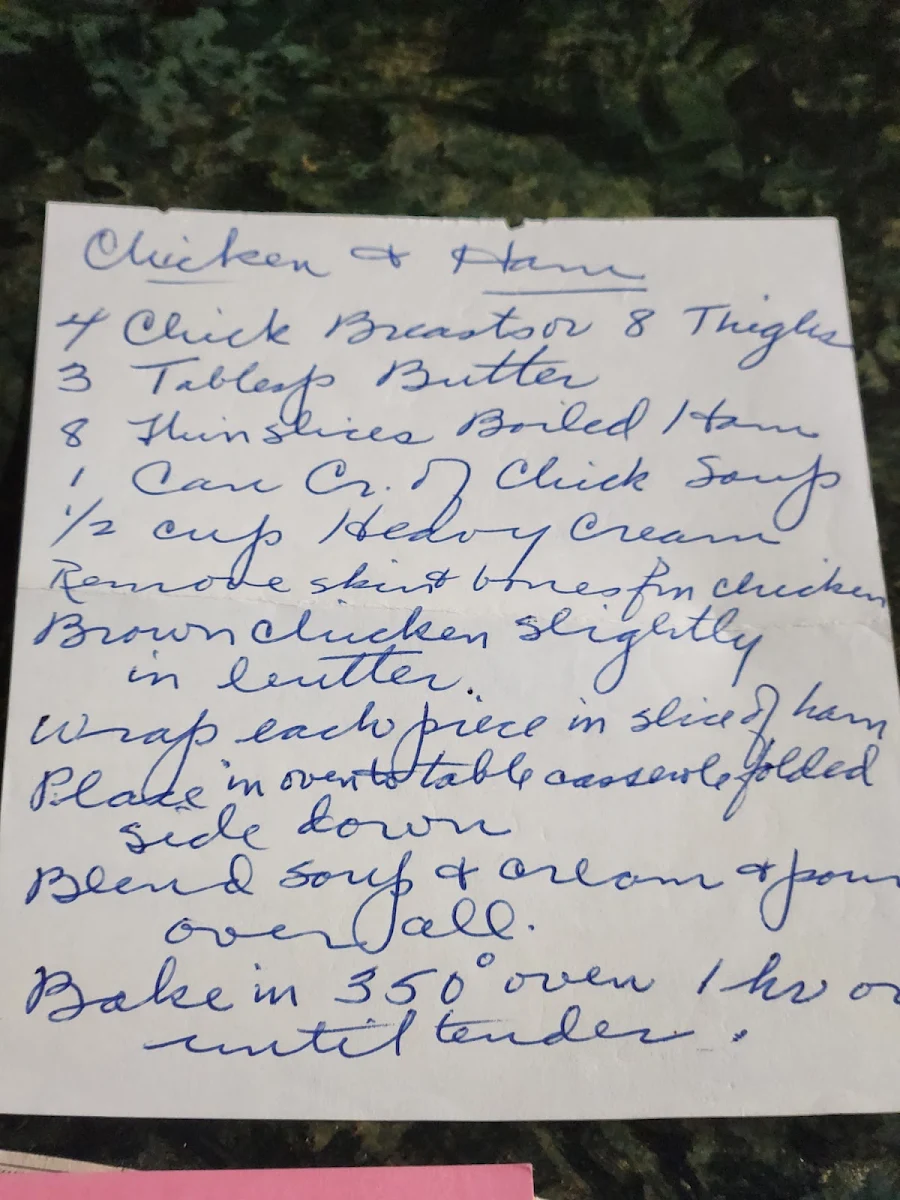 Chicken & Ham
4 Chick Breasts or 8 Thighs
3 Tablesp Butter
8 Thin slices Boiled Ham
1 Can Cr. of Chick Soup
1/2 cup Heavy Cream
Remove skin & bones fm chicken
Brown chicken slightly
in butter.
Wrap each piece in slice of ham
Place in oven to table casserole folded
side down
Blend soup & cream & pour
over all.
Bake in 350° oven 1 hr or
until tender.